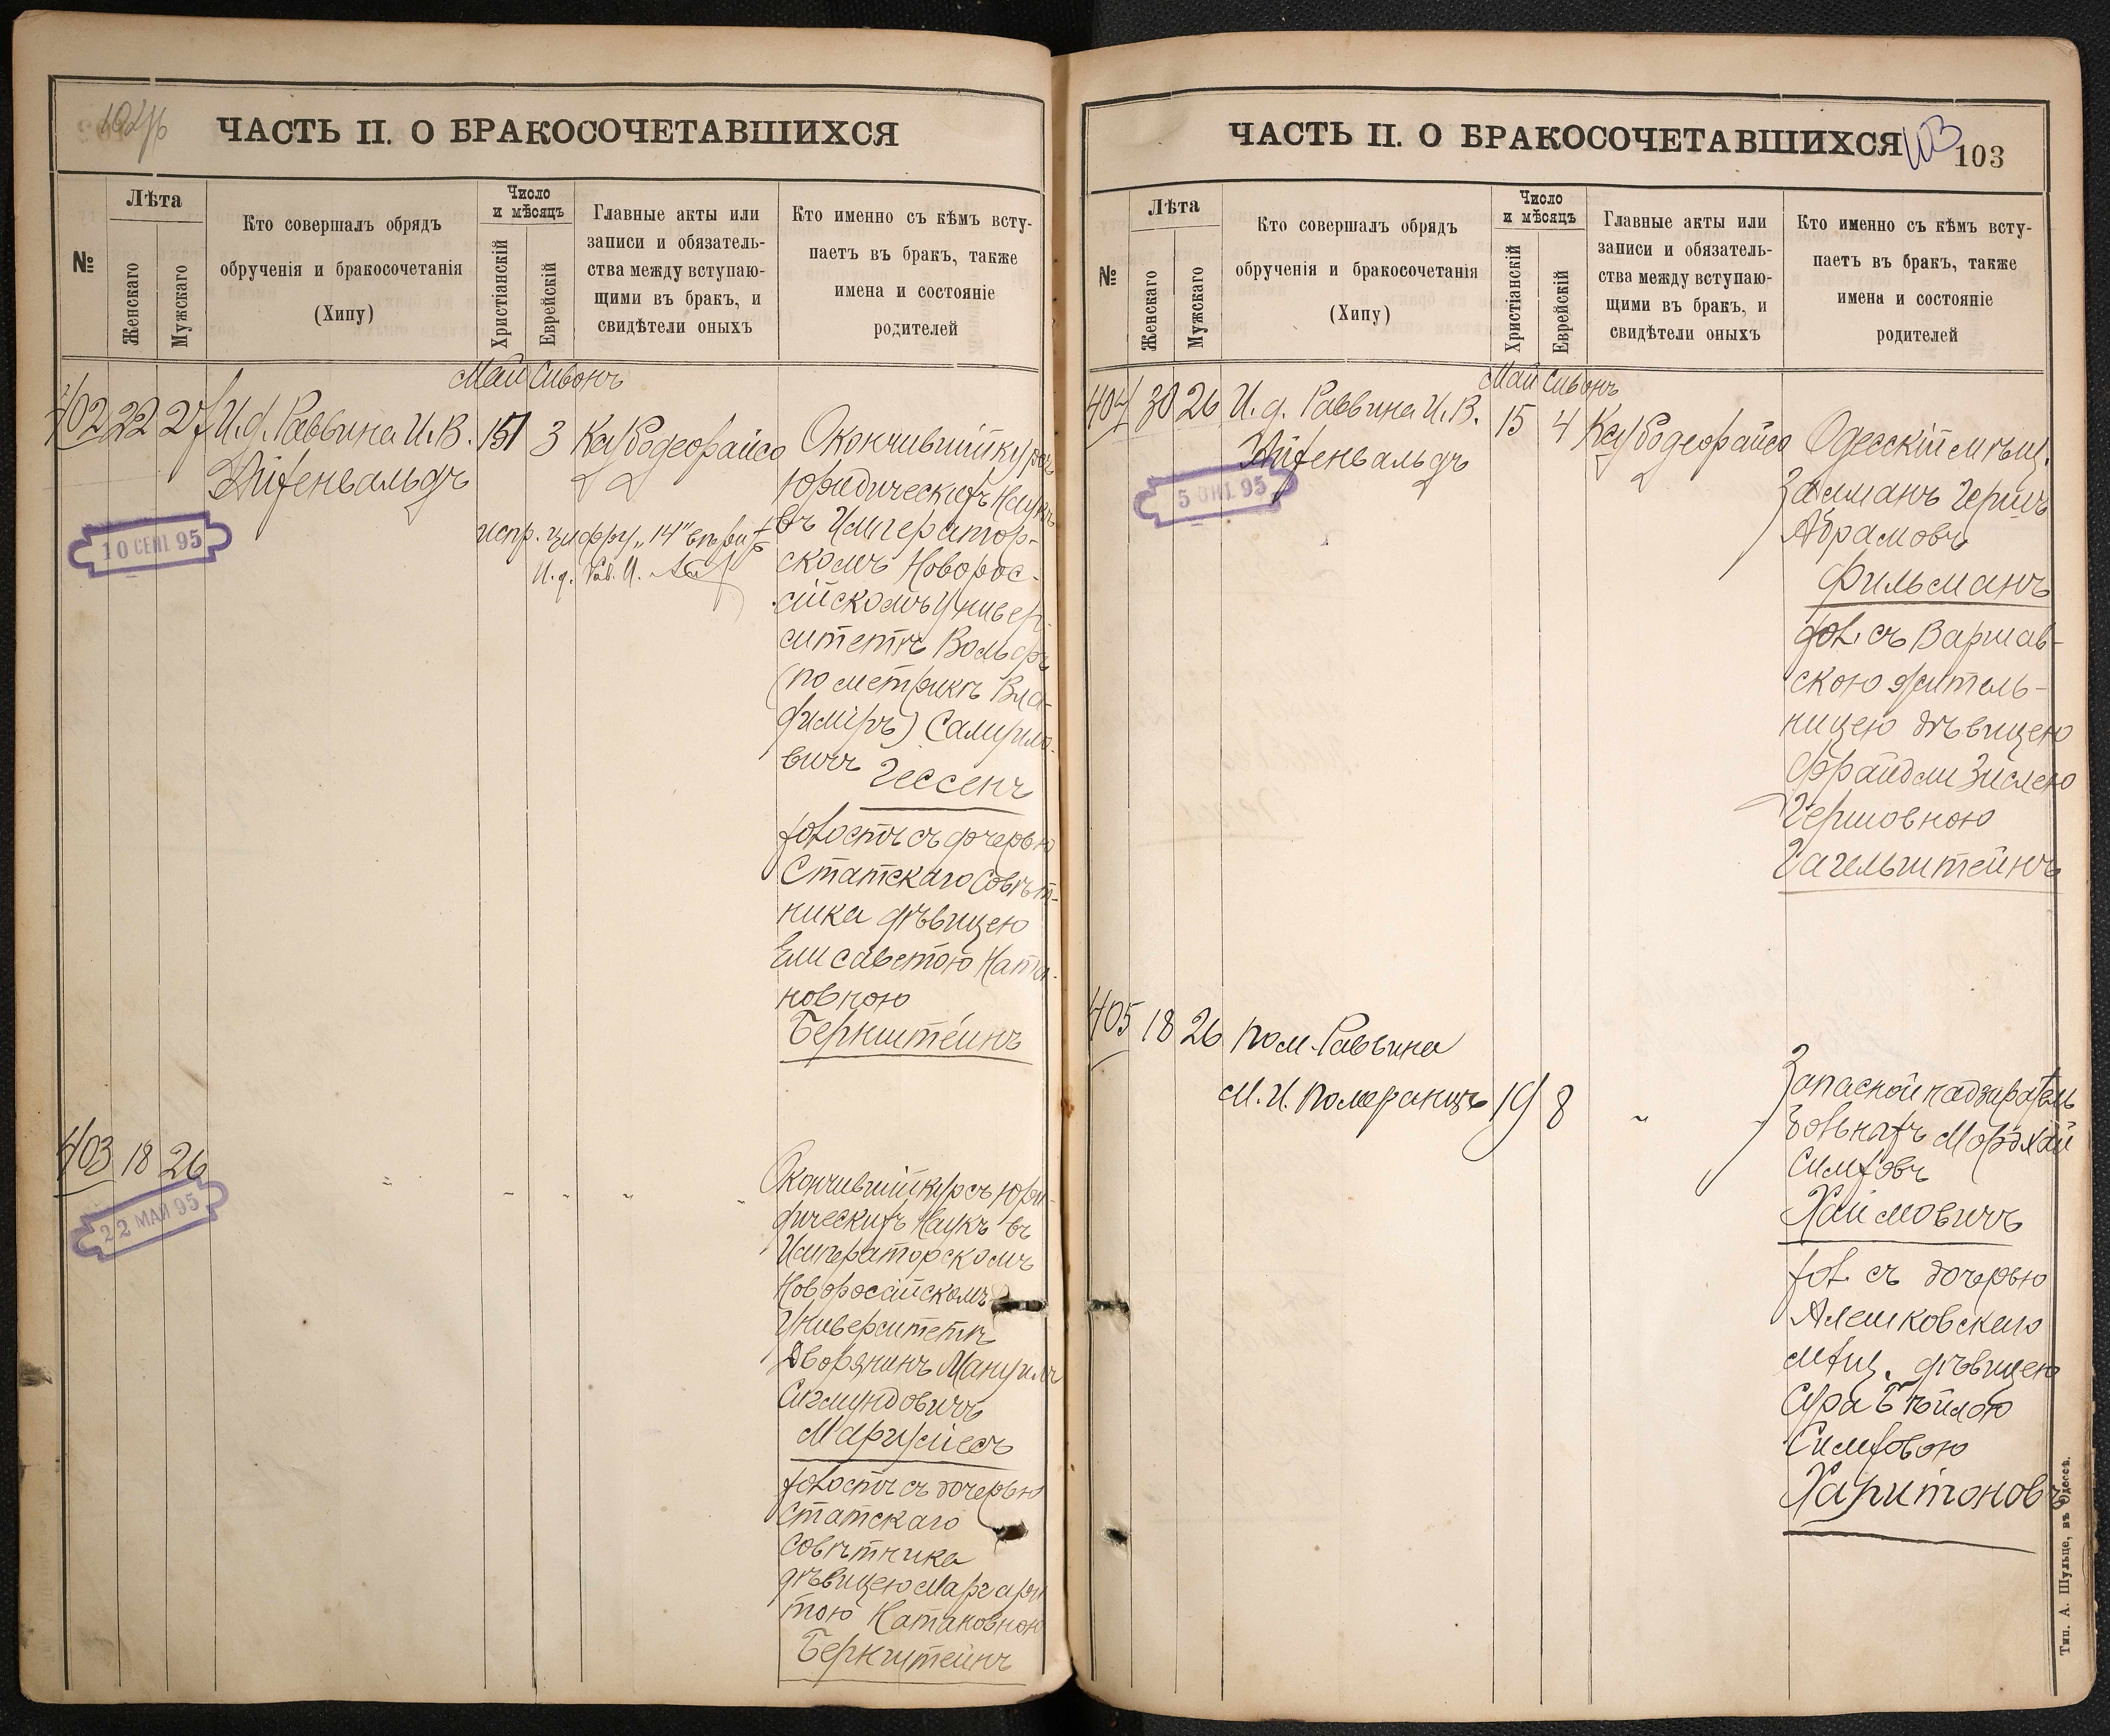 ЧАСТЬ II. О БРАКОСОЧЕТАВШИХСЯ
№
Лѣта
Женскаго
Мужскаго
Кто совершалъ обрядъ
обрученія и бракосочетанія
(Хипу)
Число
и мѣсяцъ
Христіанскій
Еврейскій
Главные акты или
записи и обязатель-
ства между вступаю-
щими въ бракъ, и
свидѣтели оныхъ
Кто именно съ кѣмъ всту-
паетъ въ бракъ, также
имена и состояніе
родителей
Май Сивонъ
402 22 27 И. д. Раввина И. В.
3
10 СЕН 95
испр. цифру „14"
И. д. Рав. И.
Окончившій курсъ
Юридическихъ Наукъ
въ Император-
скомъ Новорос-
сійскомъ Универ-
ситетѣ Вольфъ
(по метрикѣ Вла-
диміръ) Самуило-
вичъ Гессенъ
холостъ съ дочерью
Статскаго Совѣт-
ника дѣвицею
Елисаветою Ната-
новною
Бернштейнъ
403 18 26
22 МАЙ 95
Окончившій курсъ Юри-
дическихъ Наукъ въ
Императорскомъ
Новоросійскомъ
Университетѣ
Дворянинъ Мануилъ
Сигмундовичъ
Маргуліесъ
холостъ съ дочерью
Статскаго
Совѣтника
дѣвицею Маргари
тою Натановною
Бернштейнъ
ЧАСТЬ II. О БРАКОСОЧЕТАВШИХСЯ
103
103
№
Лѣта
Женскаго
Мужскаго
Кто совершалъ обрядъ
обрученія и бракосочетанія
(Хипу)
Число
и мѣсяцъ
Христіанскій
Еврейскій
Главные акты или
записи и обязатель-
ства между вступаю-
щими въ бракъ, и
свидѣтели оныхъ
Кто именно съ кѣмъ всту-
паетъ въ бракъ, также
имена и состояніе
родителей
Май Сивонъ
404 30 26 И. д. Раввина И. В. 15 4
5 95
Одесскій мѣщ.
Залманъ Гершъ
Абрамовъ
Фильманъ
хол. съ Варшав-
скою житель-
ницею дѣвицею
Фрайдли Зислею
Гершовною
Гагельштейнъ
405 18 26 Пом. Раввина
М. И. Померанцъ 19 8
Запасной надзиратель
Мордхай
Симховъ
Хаймовичъ
хол. съ дочерью
Алешковскаго
мѣщ. дѣвицею
Сура Бѣйлою
Симховою
Харитоновъ
Тип. А. Шульце, въ Одессѣ.